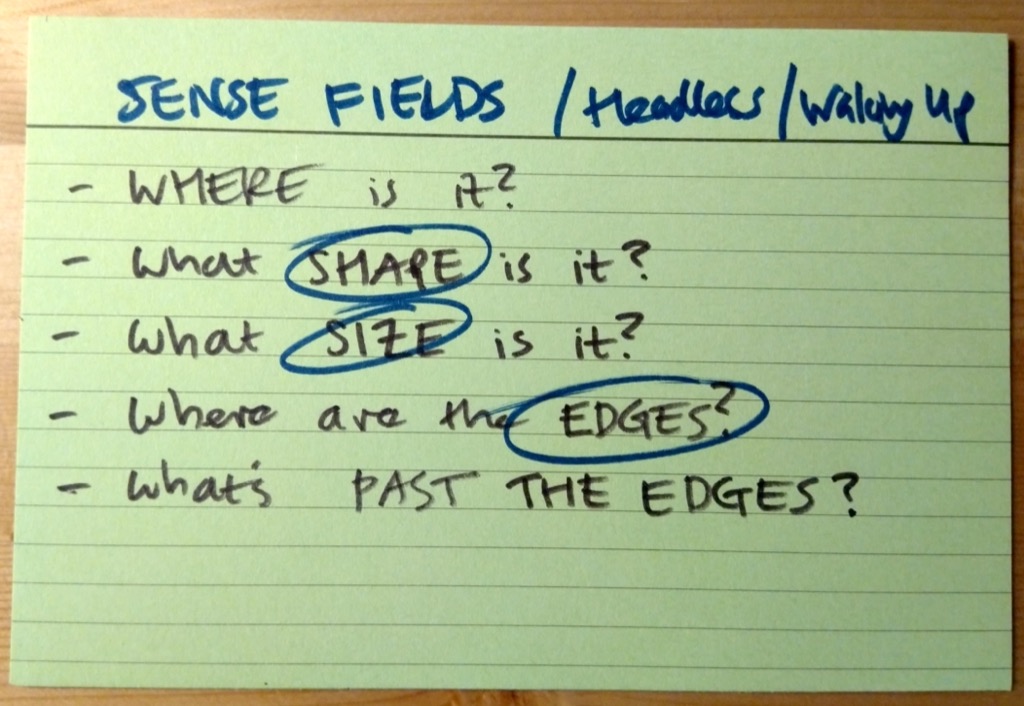 SENSE FIELDS / Headless / Waking Up
- WHERE is it?
- What SHAPE is it?
- What SIZE is it?
- Where are the EDGES?
- What's PAST THE EDGES?